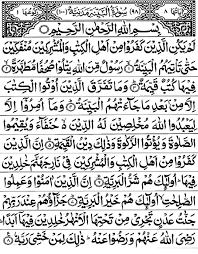 اٰيَاتُهَا ٨ (٩٨) سُوْرَةُ الْبَيِّنَةِ مَدَنِيَّةٌ (١٠٠) رُكُوْعُهَا ١
بِسْمِ اللّٰهِ الرَّحْمٰنِ الرَّحِيْمِ
لَمْ يَكُنِ الَّذِيْنَ كَفَرُوْا مِنْ اَهْلِ الْكِتٰبِ وَالْمُشْرِكِيْنَ مُنْفَكِّيْنَ
حَتّٰى تَاْتِيَهُمُ الْبَيِّنَةُ ۝ رَسُوْلٌ مِّنَ اللّٰهِ يَتْلُوْا صُحُفًا مُّطَهَّرَةً ۝
فِيْهَا كُتُبٌ قَيِّمَةٌ ۝ وَمَا تَفَرَّقَ الَّذِيْنَ اُوْتُوا الْكِتٰبَ
اِلَّا مِنْۢ بَعْدِ مَا جَآءَتْهُمُ الْبَيِّنَةُ ۝ وَمَآ اُمِرُوْٓا اِلَّا
لِيَعْبُدُوا اللّٰهَ مُخْلِصِيْنَ لَهُ الدِّيْنَ حُنَفَآءَ وَيُقِيْمُوا
الصَّلٰوةَ وَيُؤْتُوا الزَّكٰوةَ وَذٰلِكَ دِيْنُ الْقَيِّمَةِ ۝ اِنَّ الَّذِيْنَ
كَفَرُوْا مِنْ اَهْلِ الْكِتٰبِ وَالْمُشْرِكِيْنَ فِيْ نَارِ جَهَنَّمَ خٰلِدِيْنَ
فِيْهَا اُولٰٓئِكَ هُمْ شَرُّ الْبَرِيَّةِ ۝ اِنَّ الَّذِيْنَ اٰمَنُوْا وَعَمِلُوا
الصّٰلِحٰتِ اُولٰٓئِكَ هُمْ خَيْرُ الْبَرِيَّةِ ۝ جَزَآؤُهُمْ عِنْدَ رَبِّهِمْ
جَنّٰتُ عَدْنٍ تَجْرِيْ مِنْ تَحْتِهَا الْاَنْهٰرُ خٰلِدِيْنَ فِيْهَآ اَبَدًا
رَضِيَ اللّٰهُ عَنْهُمْ وَرَضُوْا عَنْهُ ذٰلِكَ لِمَنْ خَشِيَ رَبَّهٗ ۝